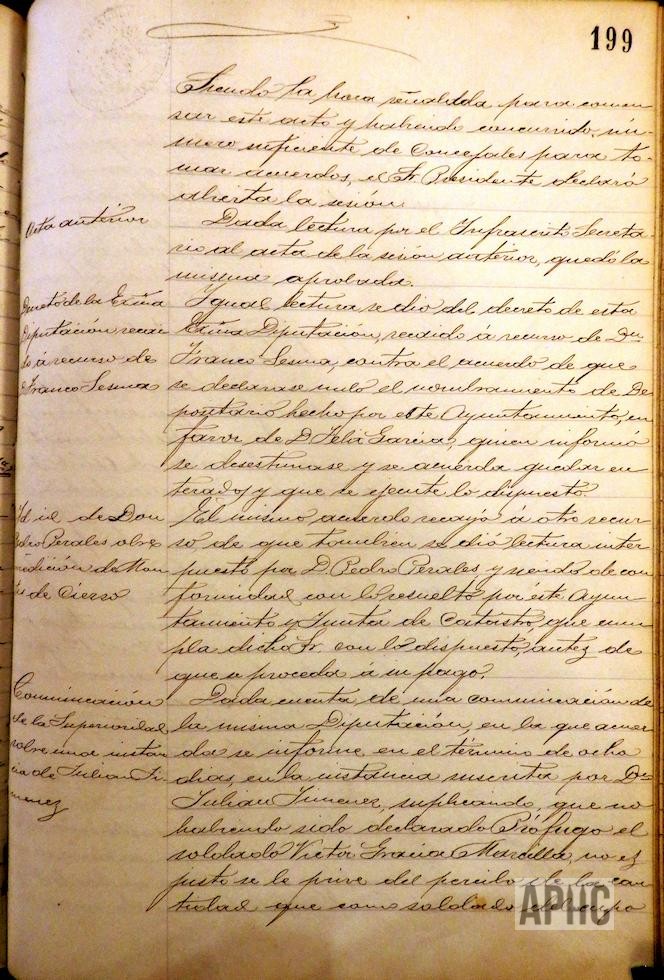 199
Siendo la hora señalada para comen
zar este acto y habiendo concurrido nú-
mero suficiente de Concejales para to-
mar acuerdos, el Sr. Presidente declaró
abierta la sesión.
Acta anterior
Dada lectura por el Infrascrito Secreta-
rio al acta de la sesión anterior, quedó la
misma aprobada.
Decreto de la Exma
Diputación recai
do á recurso de
D Franco Sesma
Igual lectura se dio del decreto de esta
Exma Diputación, recaido á recurso de Dn
Franco Sesma, contra el acuerdo de que
se declarase nulo el nombramiento de De
positario hecho por este Ayuntamiento, en
favor de D. Felix Garcia, quien informó
se desestimase y se acuerda quedar en
terados y que se ejecute lo dispuesto.
Id id de Don
Pedro Perales sobre
medición de Mon
tes de Cierzo
El mismo acuerdo recayó á otro recur-
so de que tambien se dió lectura inter-
puesto por D. Pedro Perales y siendo de con
formidad con lo resuelto por éste Ayun-
tamiento y Junta de Catastro que cum
pla dicho Sr. con lo dispuesto, antez de
que se proceda á su pago.
Comunicación
de la Superioridad
sobre una instan
cia de Julian Ji
menez
Dada cuenta de una comunicación de
la misma Diputación, en la que acuer
da se informe en el término de ocho
dias, en la instancia suscrita por Dn
Julian Jimenez, suplicando, que no
habiendo sido declarado Prófugo el
soldado Victor Gracia Mancilla, no es
justo se le prive del percibo de la can
tidad que como soldado del cupo
APHC